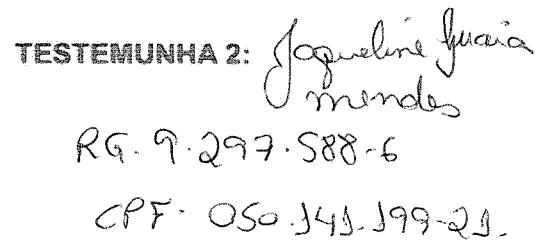 TESTEMUNHA 2: Jaqueline Guaia
mendes
RG. 9.297.588-6
CPF. 050.141.199-21.